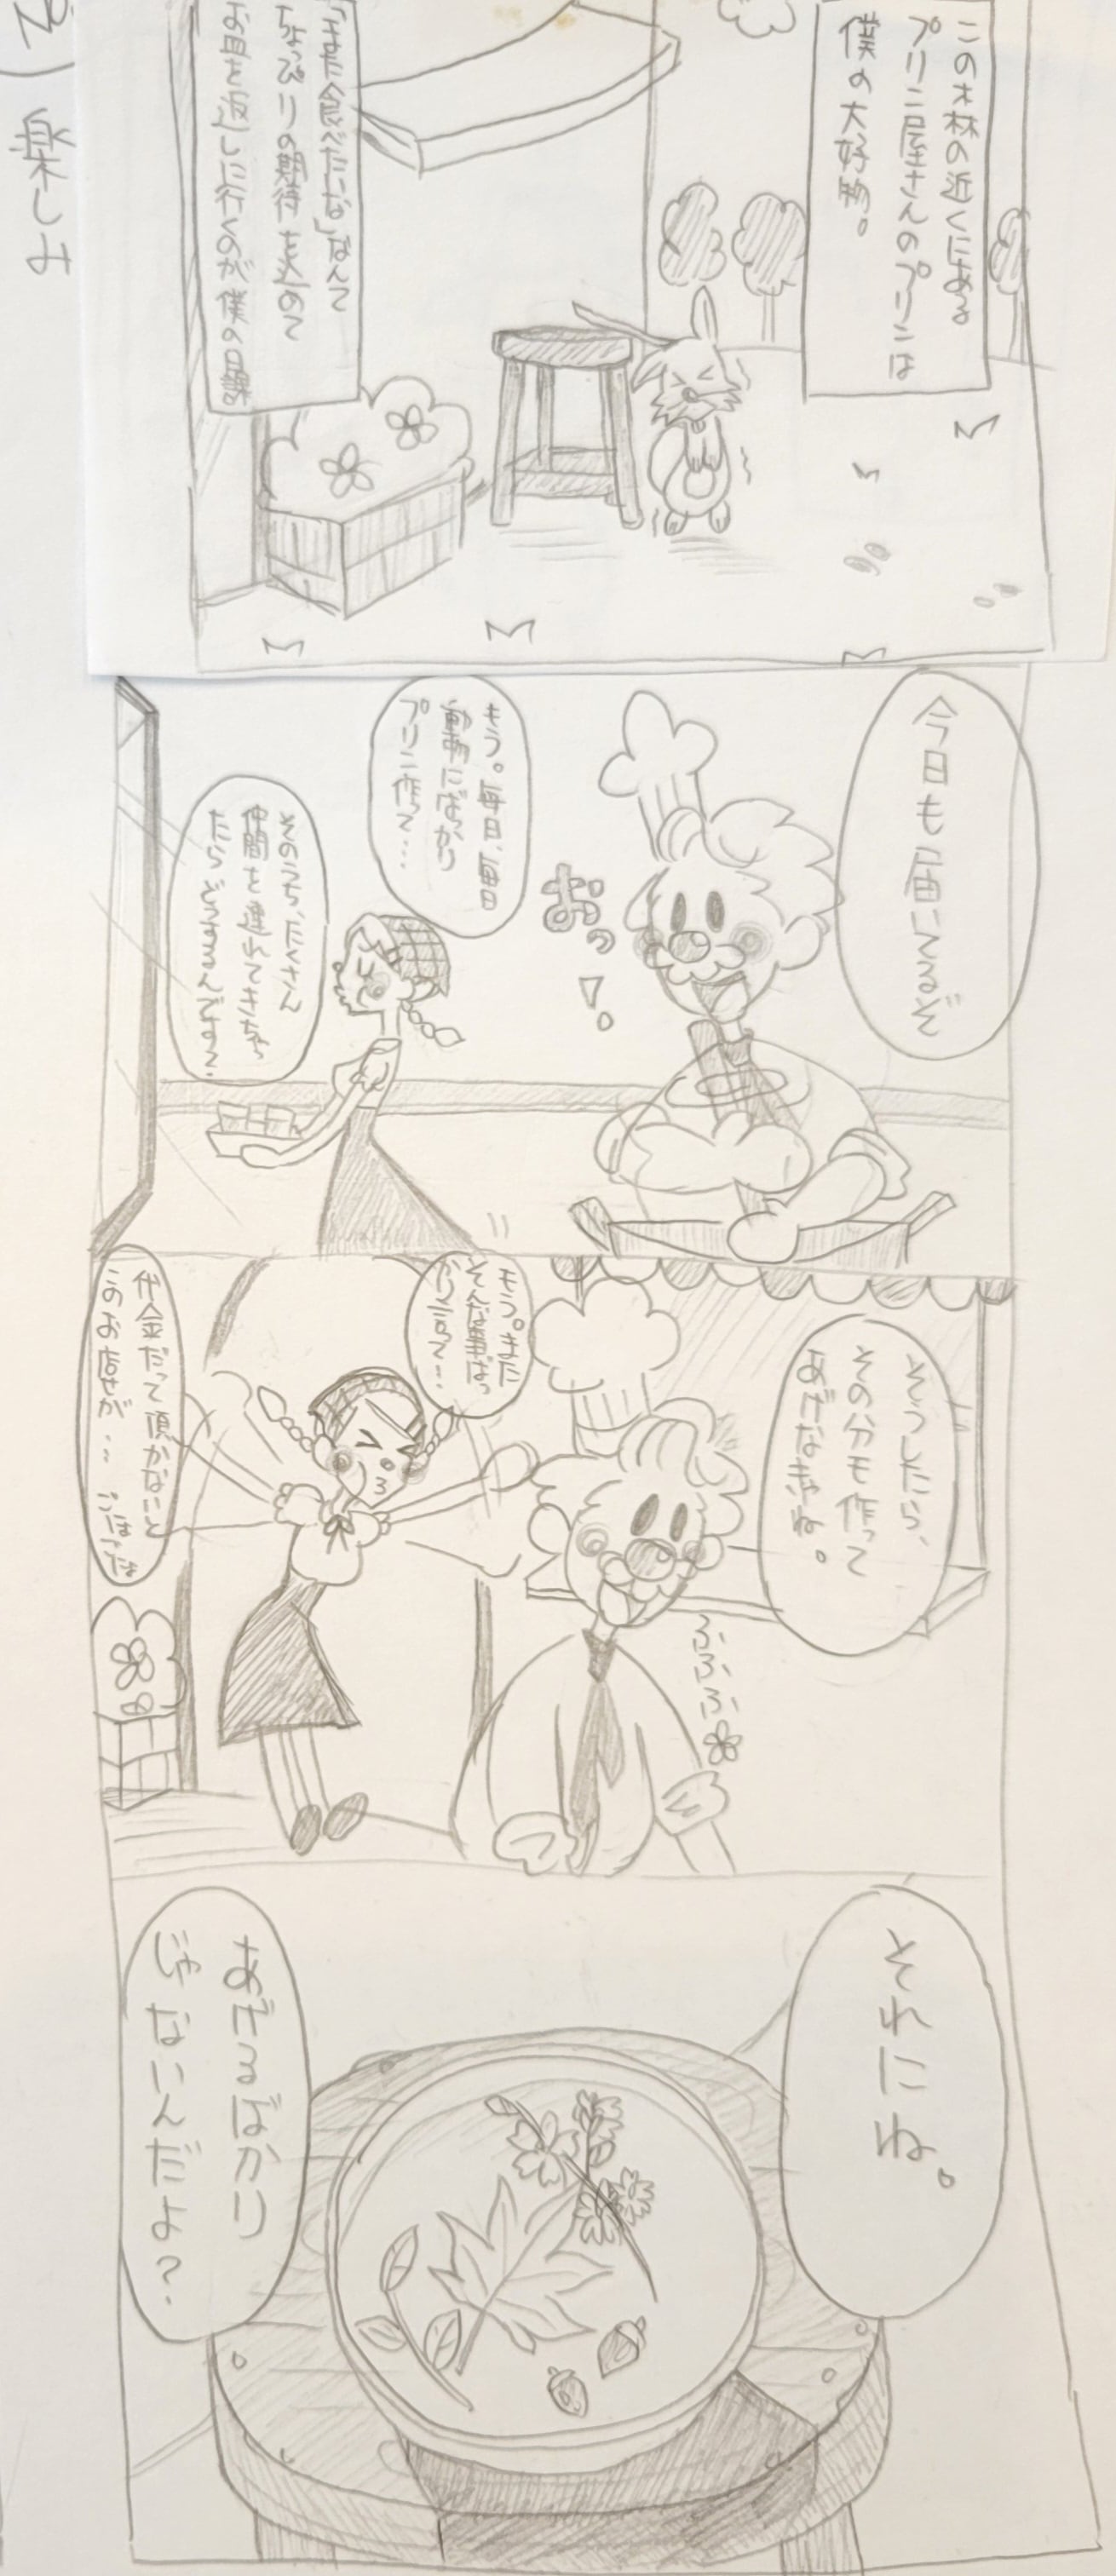 楽しみ
この森の近くにある
プリン屋さんのプリンは
僕の大好物。
「また食べたいな」なんて
ちょっぴりの期待を込めて
お皿を返しに行くのが僕の日課。
今日も届いてるぞ
おっ!。
もう。毎日、毎日
動物にばっかり
プリン作って…
そのうち、たくさん
仲間を連れてきちゃっ
たらどうするんです?
そうしたら、
その分も作って
あげなきゃね。
ふふふ
もう。また
そんな事ばっ
かり言って!
代金だって頂かないと
このお店が…
それにね。
あげるばかり
じゃないんだよ?